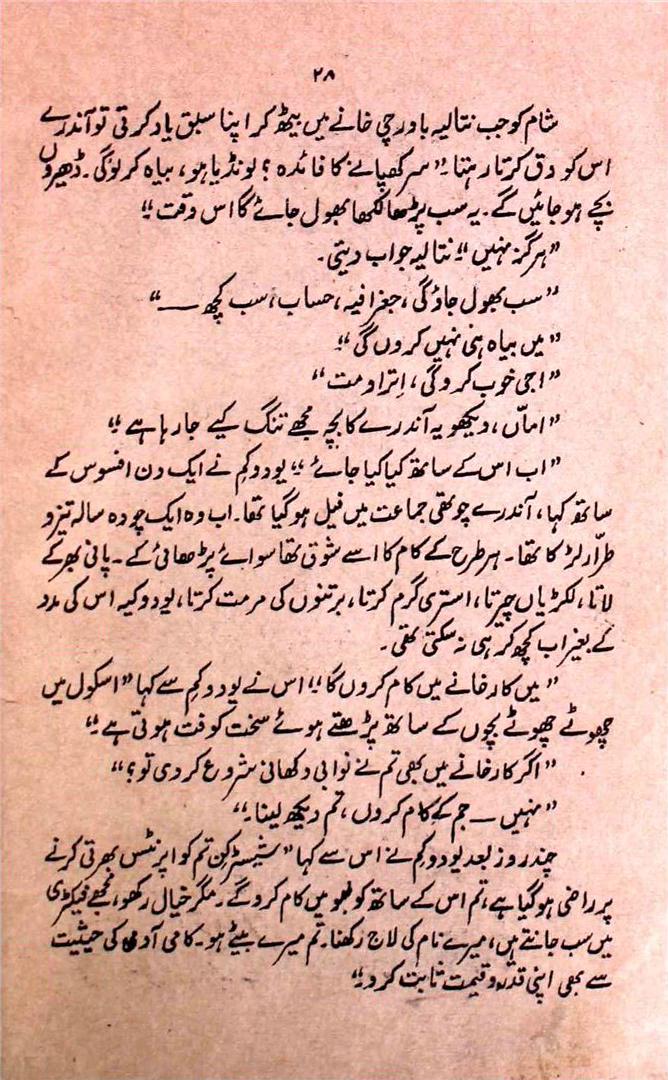 ۲۸
شام کو جب نتالیہ باورچی خانے میں بیٹھ کر اپنا سبق یاد کرتی تو آندرے
اس کو دق کرتا رہتا۔ "سر کھپانے کا فائدہ؟ لونڈیا ہو، بیاہ کر لوگی۔ ڈھیروں
بچے ہو جائیں گے۔ یہ سب پڑھا لکھا بھول جائے گا اس وقت۔"
"ہرگز نہیں۔" نتالیہ جواب دیتی۔
"سب بھول جاؤگی، جغرافیہ، حساب، سب کچھ ــــ"
"میں بیاہ ہی نہیں کروں گی۔"
"اجی خوب کروگی، اِتراو مت"
"اماّں، دیکھو یہ آندرے کا بچہ مجھے تنگ کیے جا رہا ہے۔"
"اب اس کے ساتھ کیا کیا جائے۔" یودوکم نے ایک دن افسوس کے
ساتھ کہا، آندرے چوتھی جماعت میں فیل ہو گیا تھا۔ اب وہ ایک چودہ سالہ تیز و
طرّار لڑکا تھا۔ ہر طرح کے کام کا اسے شوق تھا سوائے پڑھائی کے۔ پانی بھر کے
لاتا، لکڑیاں چیرتا، استری گرم کرتا، برتنوں کی مرمت کرتا، یودوکیہ اس کی مدد
کے بغیر اب کچھ کر ہی نہ سکتی تھی۔
"میں کارخانے میں کام کروں گا۔" اس نے یودوکم سے کہا "اسکول میں
چھوٹے چھوٹے بچوں کے ساتھ پڑھتے ہوئے سخت کوفت ہوتی ہے۔"
"اگر کارخانے میں بھی تم نے نوابی دکھانی شروع کر دی تو؟"
"نہیں ــ جم کے کام کروں، تم دیکھ لینا۔"
چند روز بعد یودوکم نے اس سے کہا "شیسٹرکن تم کو اپرنٹس بھرتی کرنے
پر راضی ہو گیا ہے، تم اس کے ساتھ کولہو میں کام کروگے۔ مگر خیال رکھو، مجھے فیکٹری
میں سب جانتے ہیں، میرے نام کی لاج رکھنا۔ تم میرے بیٹے ہو۔ کامی آدمی کی حیثیت
سے بھی اپنی قدر و قیمت ثابت کرو۔"